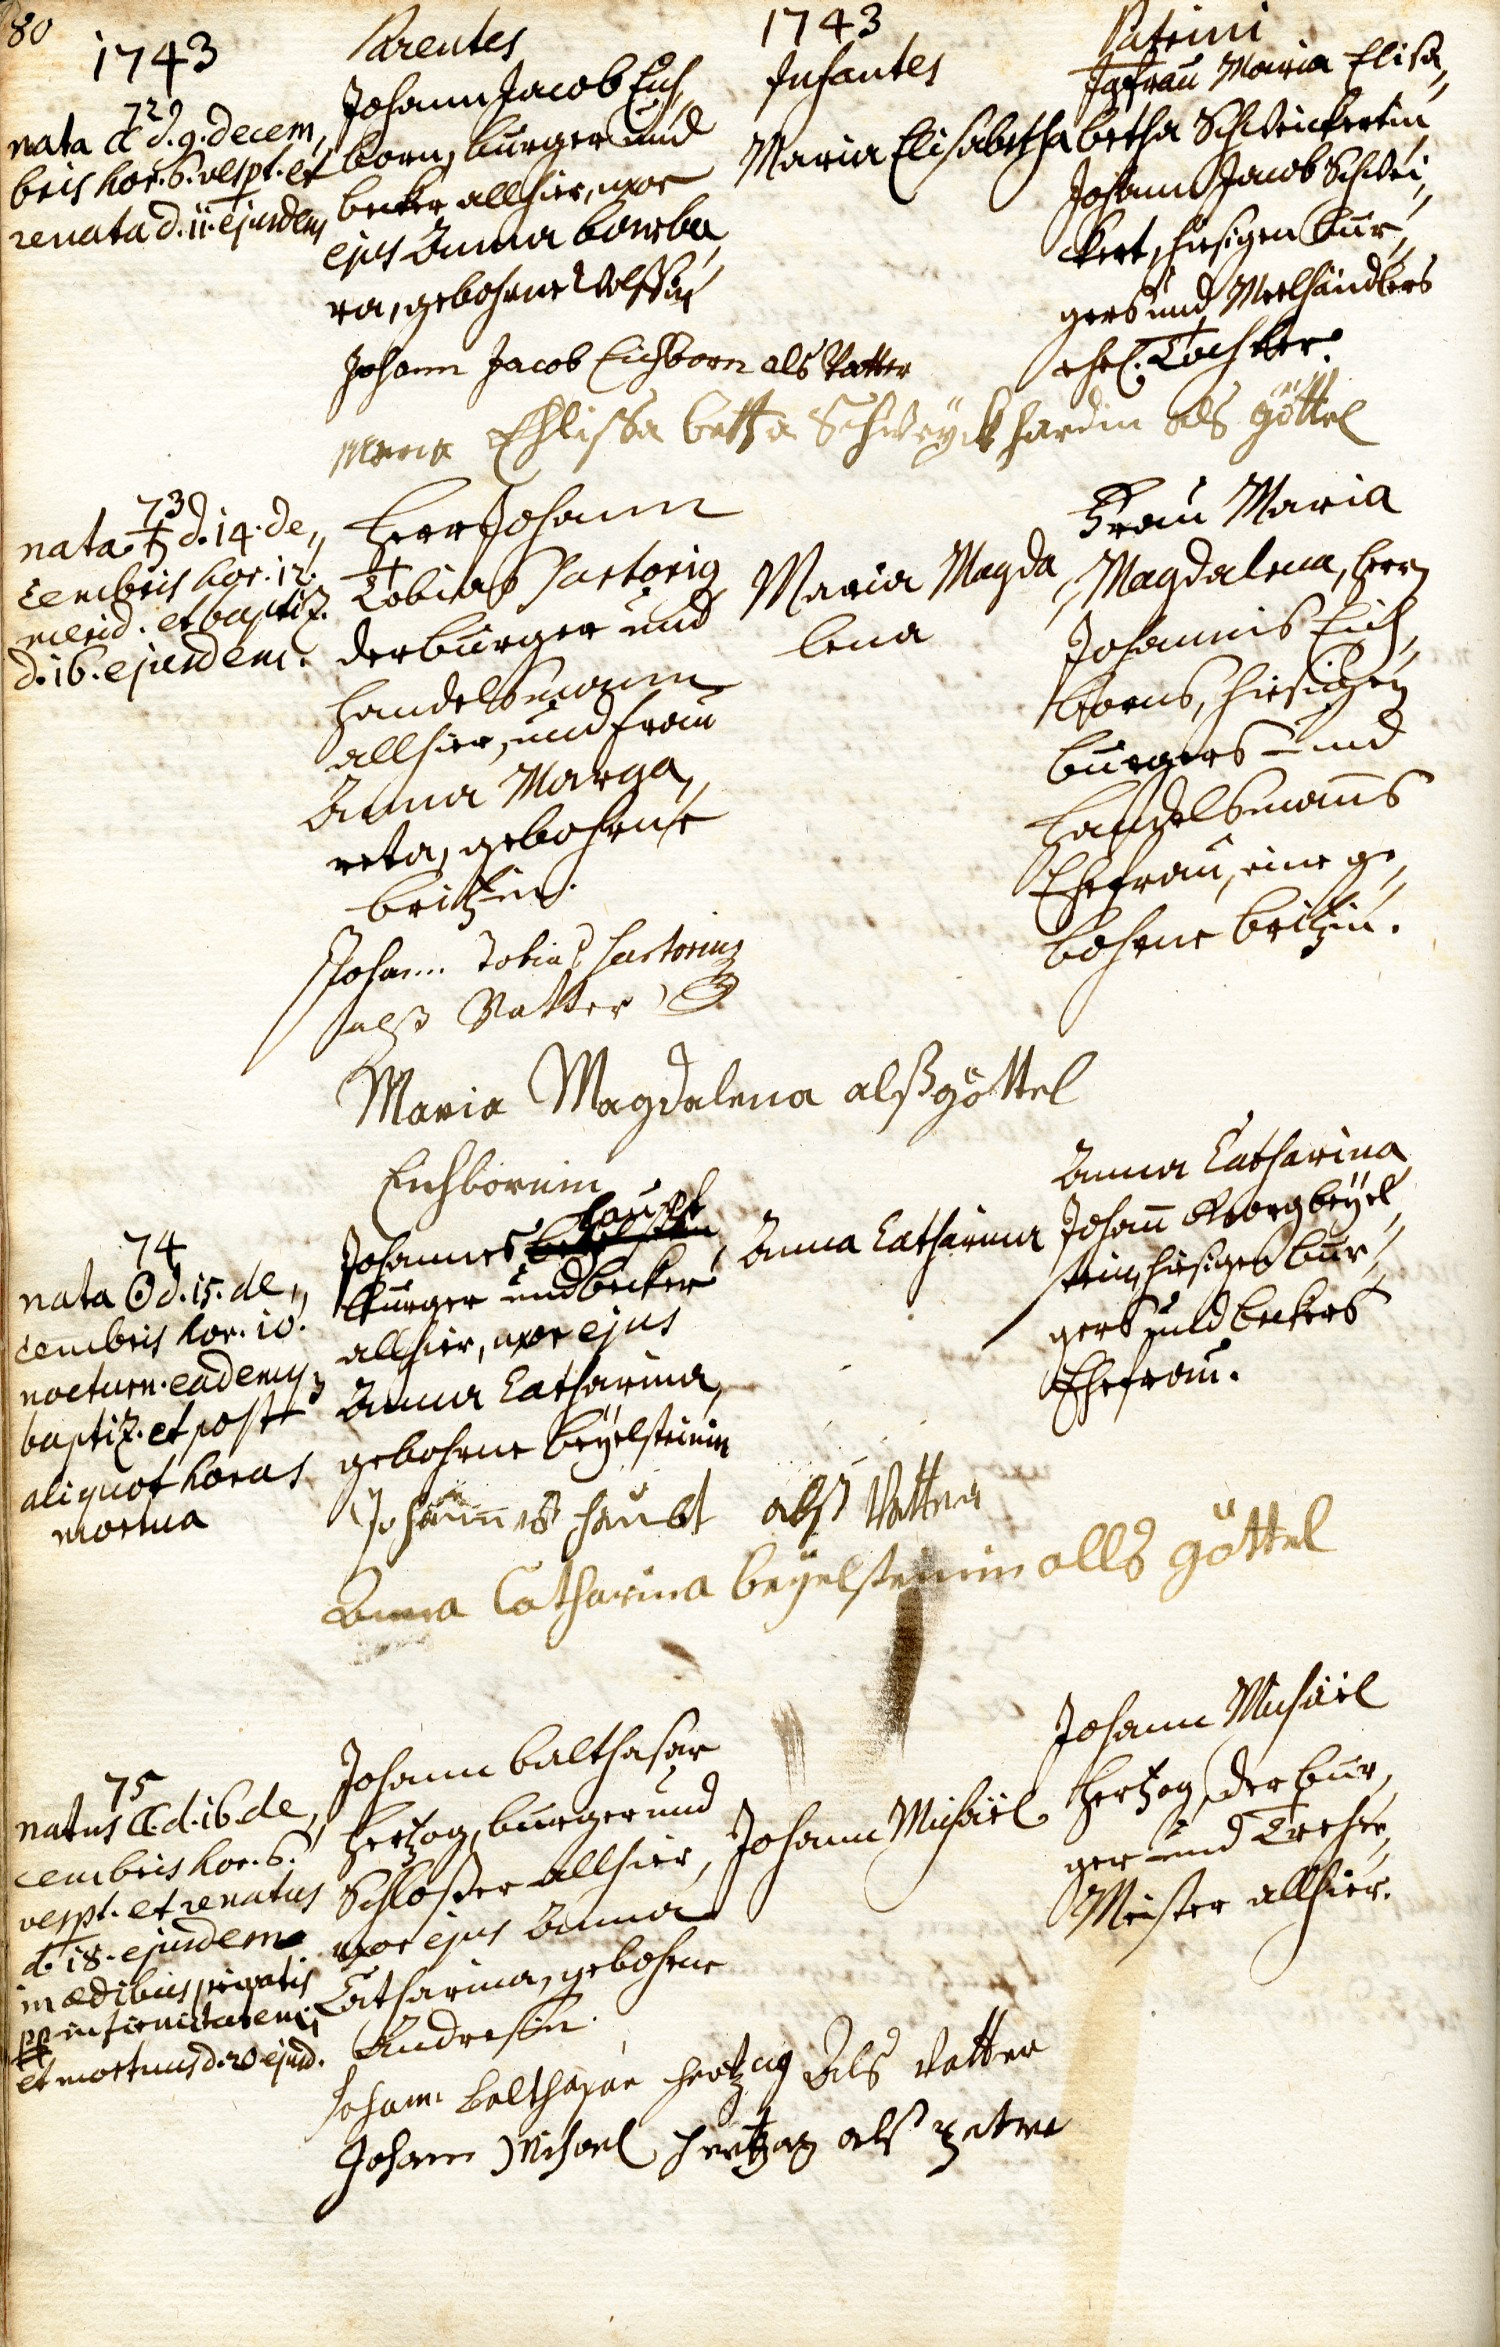 80
1743
Parentes
1743
Infantes
Patrini
72.
nata ☾ d. 9. decem„
bris hor. 6. vespt. et
renata d. 11. ejusdem
Johann Jacob Eich„
born, burger und
becker allhier, uxor
ejus Anna Barba„
ra, gebohrne Wolffin
Maria Elisabetha
Jgfrau Maria Elisa„
betha Schweickertin
Johann Jacob Schwei„
ckert, hiesigen bur„
gers und Meelhändlers
ehel. Tochter.
Johann Jacob Eichborn als Vatter
Maria Ehlissa betha Schweÿckhardin als göttel
73
nata ♄ d. 14. de„
cembris hor. 12.
merid. et baptiz.
d. 16. ejusdem.
Herr Johann
Tobias Sartorig
der burger und
handelsmann
allhier, und frau
Anna Marga„
reta, gebohrne
britzin.
Maria Magda„
lena
Frau Maria
Magdalena, herrn
Johannis Eich„
borns, hiesigen
burgers und
Handelsmanns
Ehefrau, eine ge„
bohrne britzin.
Johann Tobias Sartorius
alß Vatter
Maria Magdalena alß göttel
Eichbornin
74
nata ☉ d. 15. de„
cembris hor. 10.
nocturn. eadem
baptiz. et post
aliquot horas
mortua
haupt
Johannes
burger und becker
allhier, uxor ejus
Anna Catharina,
gebohrne beÿelsteinin
Anna Catharina
Anna Catharina
Johann Georg beÿel„
stein, hiesigen bur„
gers und beckers
Ehefrau.
Johannes haubt alß Vatter
Anna Catharina beÿelsteinin alls göttel
75
natus ☾ d. 16. de„
cembris hor. 6.
vespt. et renatus
d. 18. ejusdem
in ædibus privatis
pp infirmitatem;
et mortuus d. 20 ejusd.
Johann balthasar
Hertzog, burger und
Schloßer allhier,
uxor ejus Anna
Catharina, gebohrne
Andresin.
Johann Michäel
Johann Michäel
Hertzog, der bur„
ger und Dreher„
Meister allhier.
Johann balthasar Hertzog Als Vatter
Johann Michael Hertzog als petter